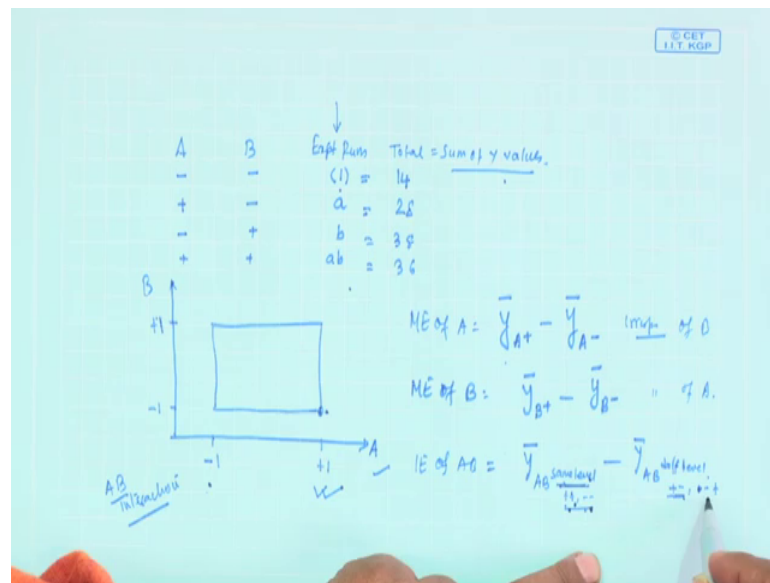 © CET
I.I.T. KGP
A B Expt Run Total = Sum of y values.
- - (1) = 14
+ - a = 28
- + b = 38
+ + ab = 36
B
+1
-1
-1 +1 A
AB
Interaction
ME of A = y̅A+ - y̅A- of B
ME of B = y̅B+ - y̅B- " of A.
IE of AB = y̅AB same level - y̅AB diff level
++, -- +-, -+